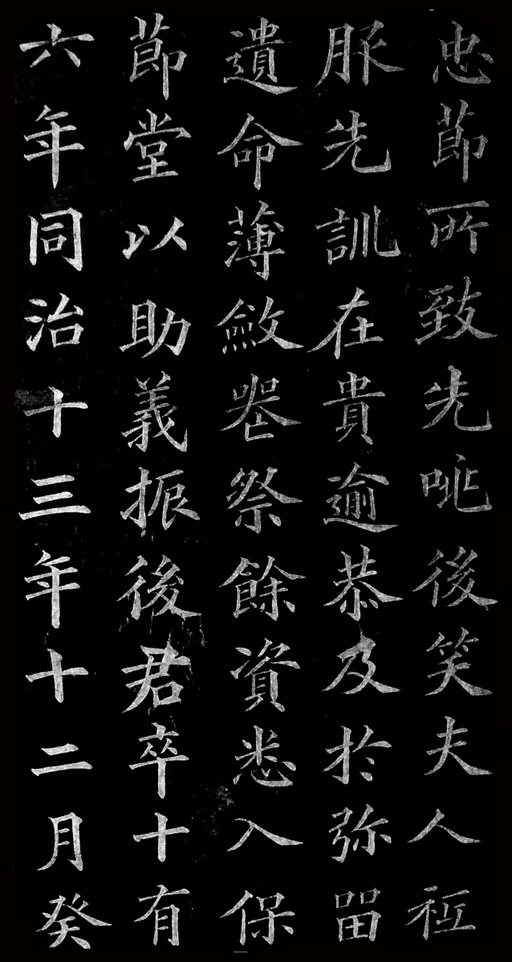 忠節所致先咷後笑夫人祗
先訓在貴逾恭及於弥畱
遺命薄斂喪祭餘資悉入保
節堂以助義振後君卒十有
六年同治十三年十二月癸